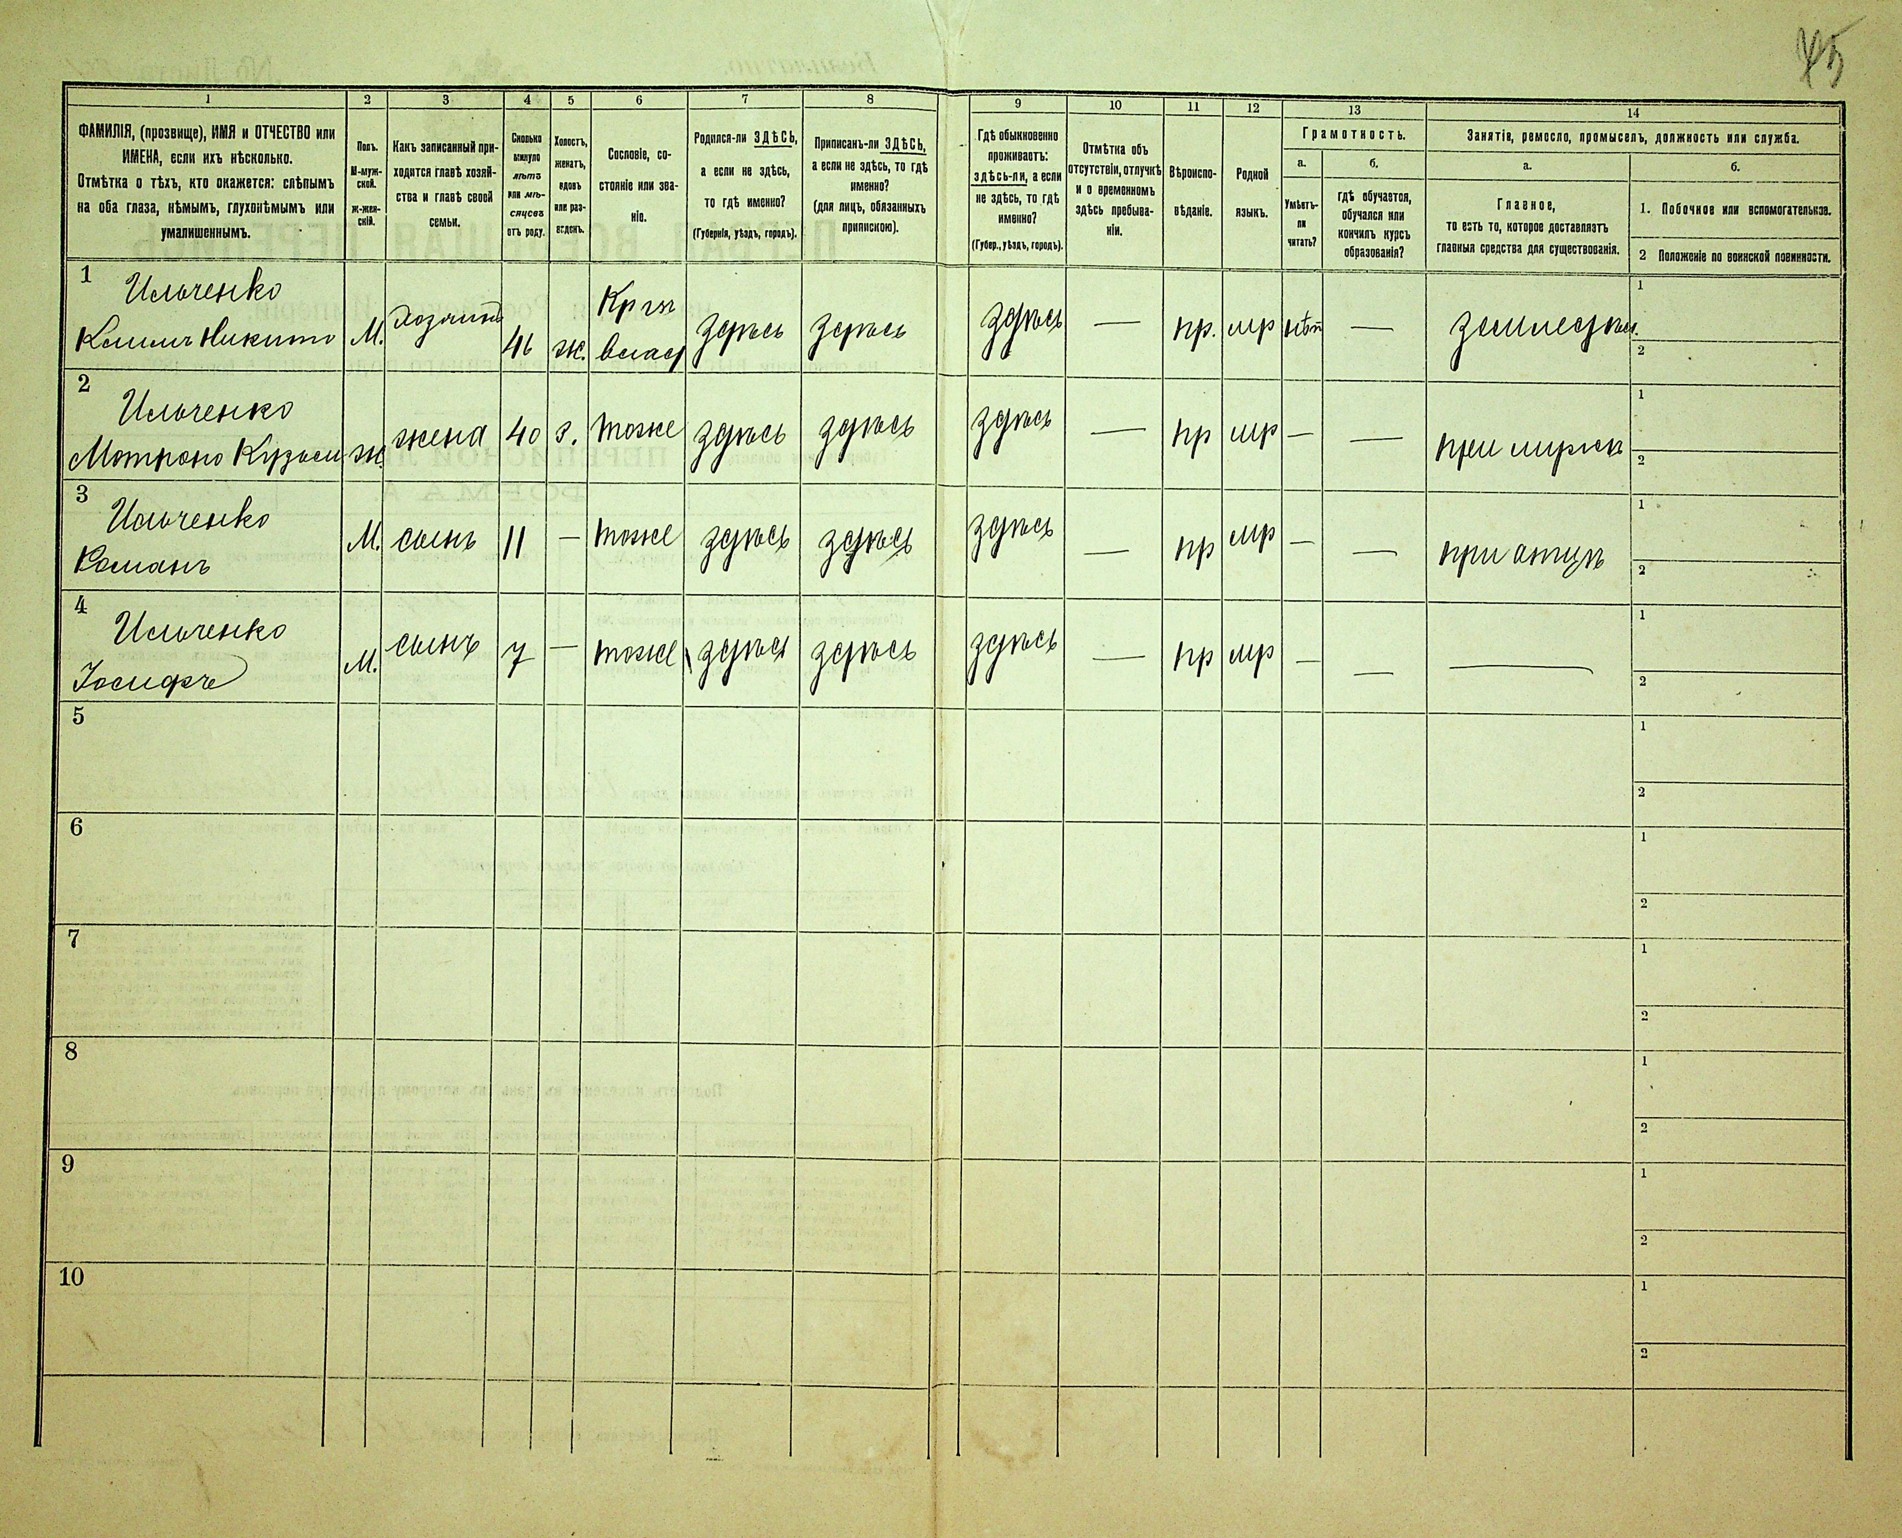 45
1 2 3 4 5 6 7 8 9 10 11 12 13 14
ФАМИЛІЯ, (прозвище), ИМЯ и ОТЧЕСТВО или
ИМЕНА, если ихъ нѣсколько.
Отмѣтка о тѣхъ, кто окажется: слѣпымъ
на оба глаза, нѣмымъ, глухонѣмымъ или
умалишеннымъ.
Полъ.
М-муж-
ской.
Ж-жен-
скій.
Какъ записанный при-
ходится главѣ хозяй-
ства и главѣ своей
семьи.
Сколько
минуло
лѣтъ
или мѣ-
сяцевъ
отъ роду.
Холостъ,
женатъ,
вдовъ
или раз-
веденъ.
Сословіе, со-
стояніе или зва-
ніе.
Родился-ли ЗДѢСЬ,
а если не здѣсь,
то гдѣ именно?
(Губернія, уѣздъ, городъ).
Приписанъ-ли ЗДѢСЬ,
а если не здѣсь, то гдѣ
именно?
(для лицъ, обязанныхъ
припискою).
Гдѣ обыкновенно
проживаетъ:
здѣсь-ли, а если
не здѣсь, то гдѣ
именно?
(Губер., уѣздъ, городъ).
Отмѣтка объ
отсутствіи, отлучкѣ
и о временномъ
здѣсь пребыва-
ніи.
Вѣроиспо-
вѣданіе.
Родной
языкъ.
Грамотность.
а.
Умѣетъ-
ли
читать?
б.
гдѣ обучается,
обучался или
кончилъ курсъ
образованія?
Занятіе, ремесло, промыселъ, должность или служба.
а.
Главное,
то есть то, которое доставляетъ
главныя средства для существованія.
б.
1. Побочное или вспомогательное.
2 Положеніе по воинской повинности.
1 Ильченко
Климъ Никит М. хозяинъ 46 ж. Кр изъ
владѣ здѣсь здѣсь здѣсь — пр. мр нѣт — земледѣл. 1
2
2 Ильченко
Матрона Кузьм ж. жена 40 з. тоже здѣсь здѣсь здѣсь — пр мр — — при мужѣ 1
2
3 Ильченко
Романъ М. сынъ 11 — тоже здѣсь здѣсь здѣсь — пр мр — — при отцѣ 1
2
4 Ильченко
Іосифъ М. сынъ 7 — тоже здѣсь здѣсь здѣсь — пр мр — — — 1
2
5 1
2
6 1
2
7 1
2
8 1
2
9 1
2
10 1
2